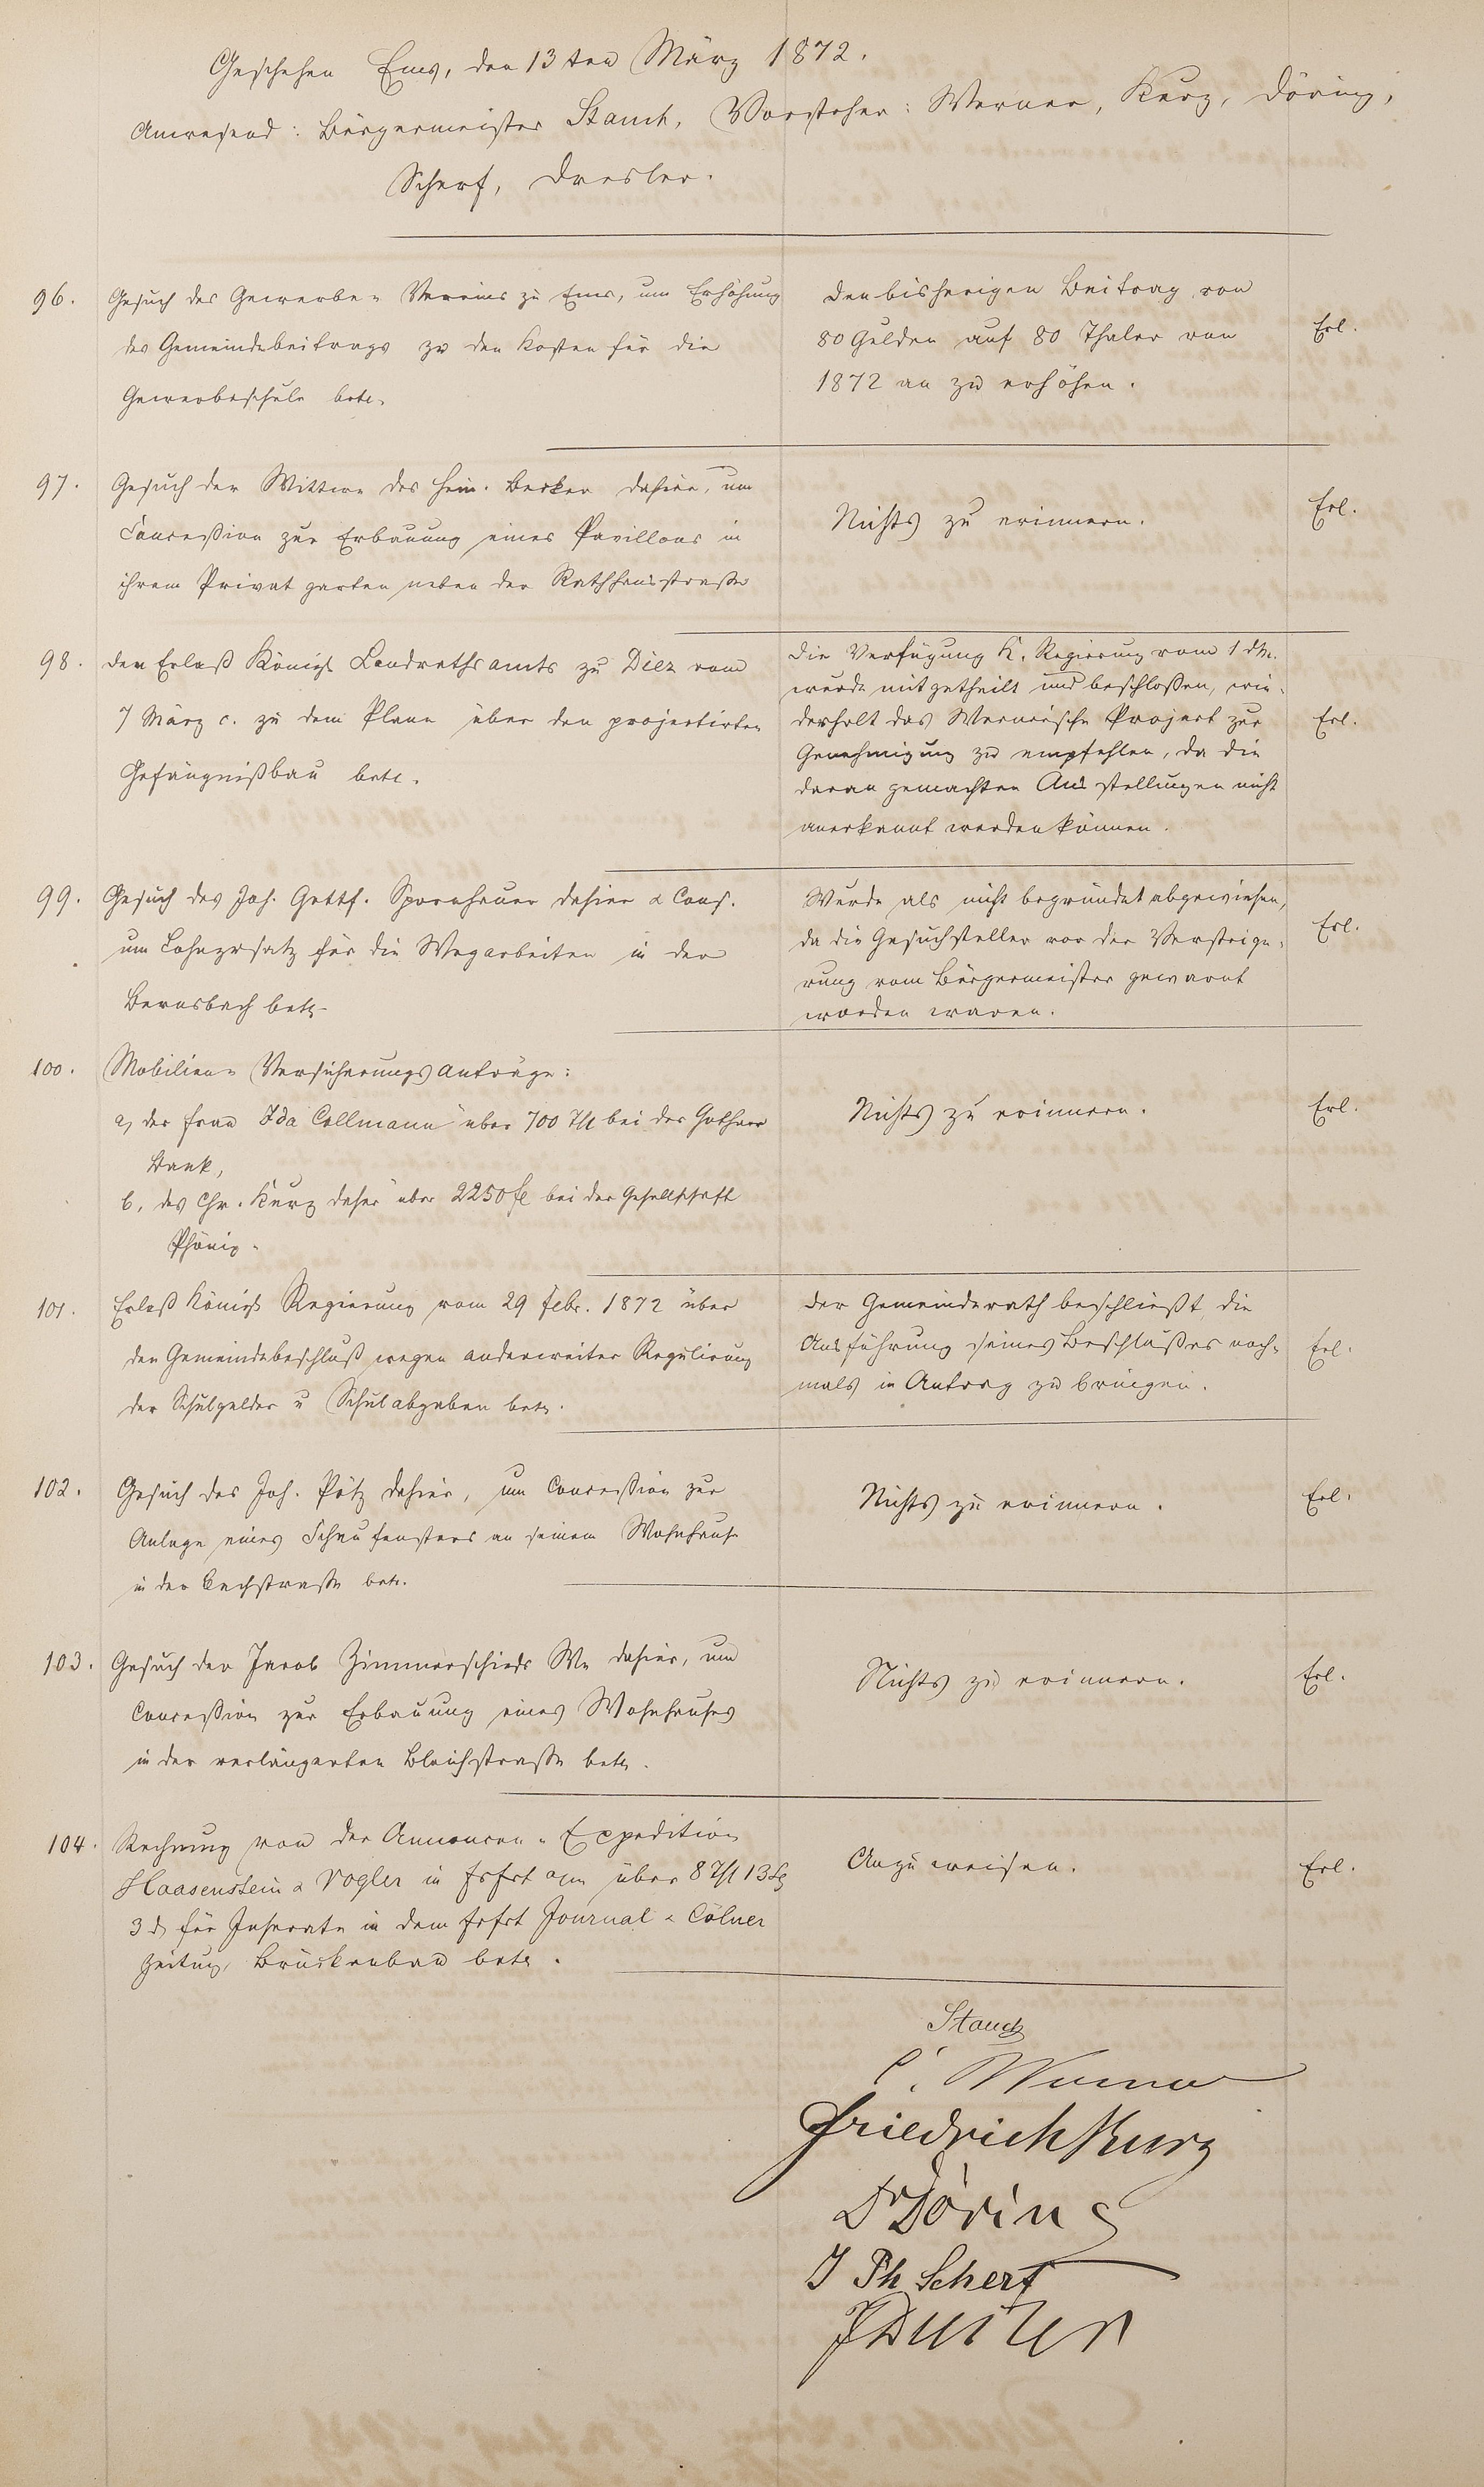 Geschehen Ems, den 13ten März 1872.
Anwesend: Bürgermeister Stauch, Vorsteher: Werner, Kurz, Döring,
Scherf, Dresler.
96.
Gesuch des Gewerbe- Vereins zu Ems, um Erhöhung
des Gemeindebeitrags zu den Kosten für die
Gewerbeschule betr.
den bisherigen Beitrag von
80 Gulden auf 80 Thaler von
1872 an zu erhöhen.
Erl.
97.
Gesuch der Wittwe des Hein. Becker dahier, um
Concession zur Erbauung eines Pavillons in
ihrem Privat garten neben der Rathhausstraße
Nichts zu erinnern.
Erl.
98.
den Erlaß Königl Landrathsamts zu Diez vom
7 März c. zu dem Plane über den projectirten
Gefängnißbau betr.
die Verfügung K. Regierung vom 1 dM.
wurde mitgetheilt und beschloßen, wie-
derholt das Werner'sche Project zur
Genehmigung zu empfehlen, da die
daran gemachten Ausstellungen nicht
anerkannt werden können.
Erl.
99.
Gesuch des Joh. Gottf. Spornhauer dahier & Cons.
um Lohnersatz für die Wegarbeiten in der
Bernsbach betr.
Wurde als nicht begründet abgewiesen,
da die Gesuchsteller vor der Versteige-
rung vom Bürgermeister gewarnt
worden waren.
Erl.
100.
Mobilien- Versicherungs Anträge:
a, der Frau Ida Collmann über 700 Thl bei der Gothaer
Bank,
b, des Chr. Kurz daher über 2250 fl bei der Gesellschaft
Phönix.
Nichts zu erinnern.
Erl.
101.
Erlaß Königl. Regierung vom 29 Febr. 1872 über
den Gemeindebeschluß wegen anderweiter Regulirung
der Schulgelder u Schulabgaben betr.
der Gemeinderath beschließt, die
Ausführung seines Beschlußes noch-
mals in Antrag zu bringen.
Erl.
102.
Gesuch des Joh. Pötz dahier, um Concession zur
Anlage eines Schaufensters an seinem Wohnhause
in der Bachstraße betr.
Nichts zu erinnern.
Erl.
103.
Gesuch der Jacob Zimmerschieds We dahier, um
Concession zur Erbauung eines Wohnhauses
in der verlängerten Bleichstraße betr.
Nichts zu erinnern.
Erl.
104.
Rechnung von der Annoncen- Expedition
Haasenstein & Vogler in Frfrt a/m über 8 Thl 13 Sg
3 d für Inserate in dem Frfrt Journal & Cölner
Zeitung, Brückenbau betr.
Anzuweisen.
Erl.
Stauch
C. Werner
Friedrich Kurz
Dr Döring
J Ph Scherf
J Dresler